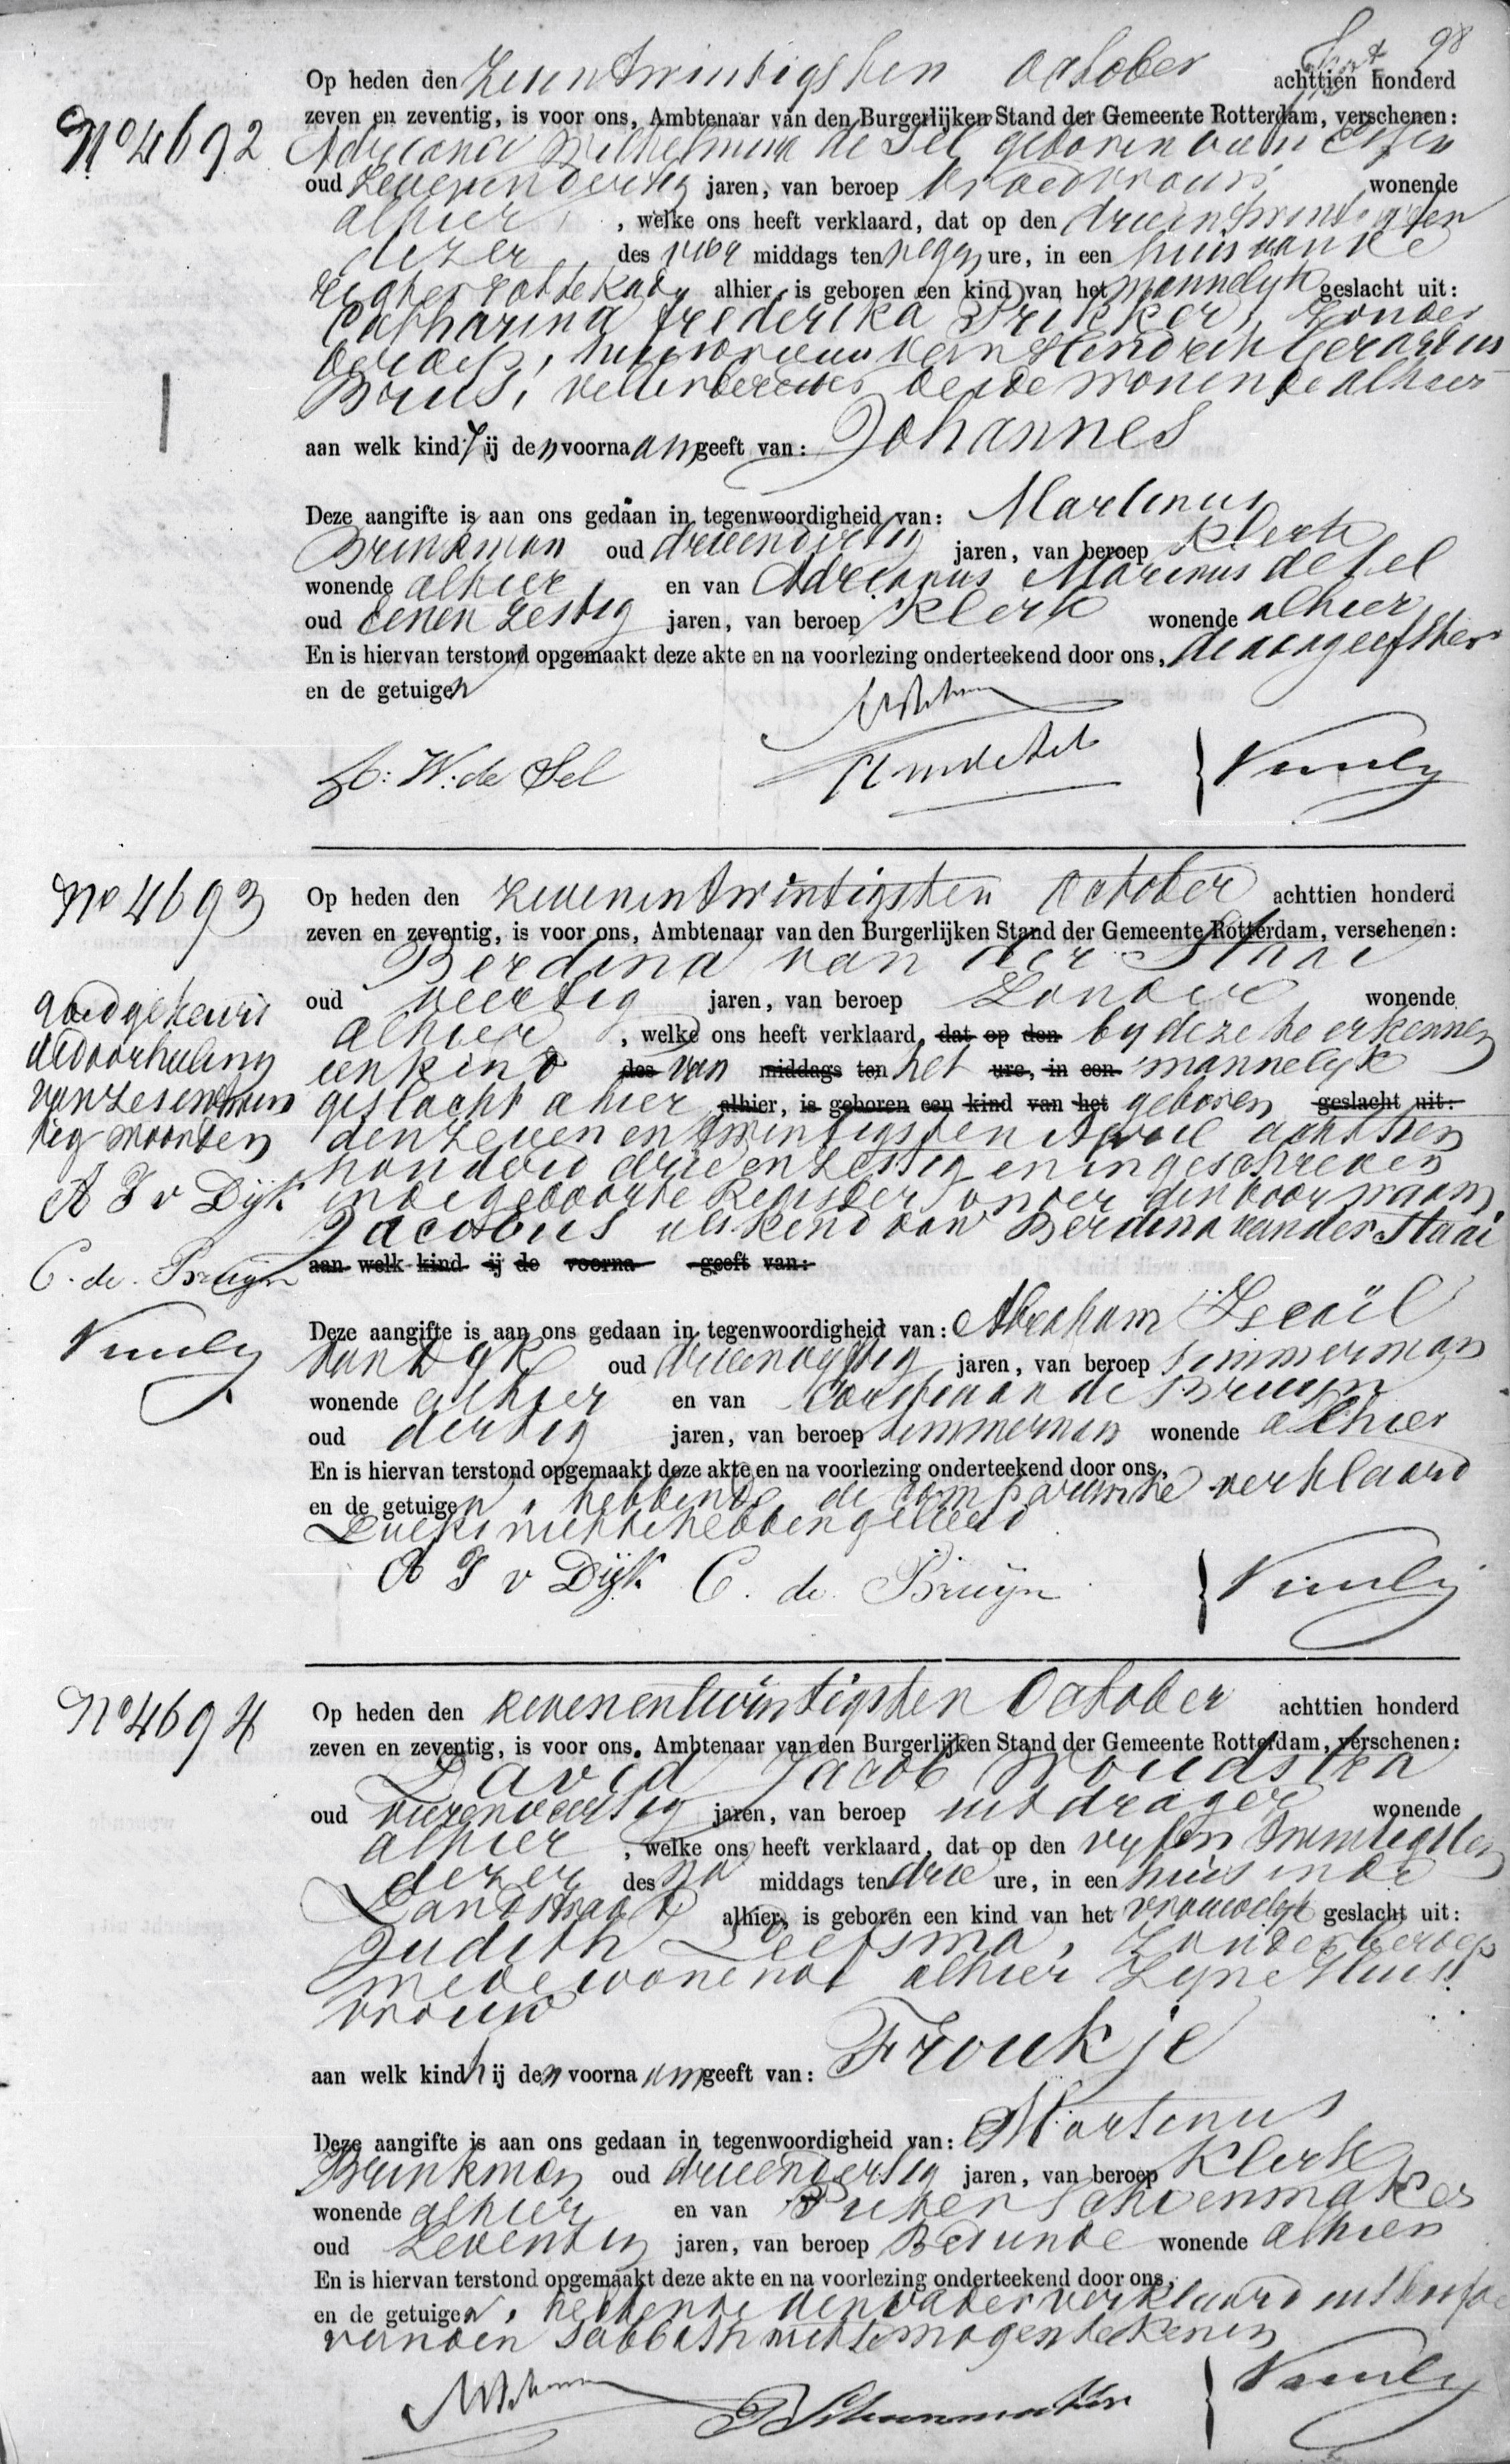 98
Op heden den Zevenentwintigsten October achttien honderd
zeven en zeventig, is voor ons, Ambtenaar van den Burgerlijken Stand der Gemeente Rotterdam, verschenen:
No 4692
Adriana Wilhelmina de Sel geboren van
oud Zevenendertig jaren, van beroep vroedvrouw wonende
alhier, welke ons heeft verklaard, dat op den drieentwintigsten
dezer des voor middags ten negen ure, in een huis aan de
Rotte Kade alhier, is geboren een kind van het mannelijk geslacht uit:
Catharina Frederika Prikker, zonder
beroep, huisvrouw van Hendrik Gerardus
Brus, beide wonende alhier
aan welk kind Zij den voornaam geeft van: Johannes
Deze aangifte is aan ons gedaan in tegenwoordigheid van: Martinus
Brinkman oud drieendertig jaren, van beroep Klerk
wonende alhier en van Adrianus Marinus de Sel
oud eenen zestig jaren, van beroep Klerk wonende alhier
En is hiervan terstond opgemaakt deze akte en na voorlezing onderteekend door ons, de aangeefster
en de getuigen
A: W. de Sel
AM de Sel
No 4693
Op heden den zevenentwintigsten October achttien honderd
zeven en zeventig, is voor ons, Ambtenaar van den Burgerlijken Stand der Gemeente Rotterdam, verschenen:
Berdina van der Staai
oud veertig jaren, van beroep Zonder wonende
alhier, welke ons heeft verklaard, dat op den by deze te erkennen
een kind des van middags ten het ure, in een mannelijk
geslacht alhier alhier, is geboren een kind van het geboren geslacht uit:
den zeven en twintigsten April achttien
honderd drie en zestig en ingeschreven
in de geboorte Register onder den voornaam
Jacobus als kind van Berdina van der Staai
aan welk kind ij de voorna geeft van:
Goedgekeurd
de doorhaling
van zesentwin
tig woorden
A I v Dijk
C. de Bruijn
Deze aangifte is aan ons gedaan in tegenwoordigheid van: Abraham Izeäil
van Dijk oud jaren, van beroep timmerman
wonende alhier en van de Bruijn
oud dertig jaren, van beroep timmerman wonende alhier
En is hiervan terstond opgemaakt deze akte en na voorlezing onderteekend door ons,
en de getuigen, hebbende de comparante verklaard
zulks niet te hebben geleerd
A I v Dijk C. de Bruijn
No 4694
Op heden den zevenentwintigsten October achttien honderd
zeven en zeventig, is voor ons, Ambtenaar van den Burgerlijken Stand der Gemeente Rotterdam, verschenen:
David Jacob Woudstra
oud vierenveertig jaren, van beroep uitdrager wonende
alhier, welke ons heeft verklaard, dat op den vijfentwintigsten
dezer des na middags ten drie ure, in een huis in de
Zandstraat alhier, is geboren een kind van het vrouwelijk geslacht uit:
Judith Leefsma, Zonder beroep
mede wonende alhier zijne Huis
vrouw
aan welk kind hij den voornaam geeft van: Froukje
Deze aangifte is aan ons gedaan in tegenwoordigheid van: Martinus
Brinkman oud drieendertig jaren, van beroep Klerk
wonende alhier en van Pieter Schoenmaker
oud Zeventig jaren, van beroep Bediende wonende alhier
En is hiervan terstond opgemaakt deze akte en na voorlezing onderteekend door ons,
en de getuigen, hebbende den vader verklaard uit hoofde
van den Sabbath niet te mogen teekenen
P Schoenmaker